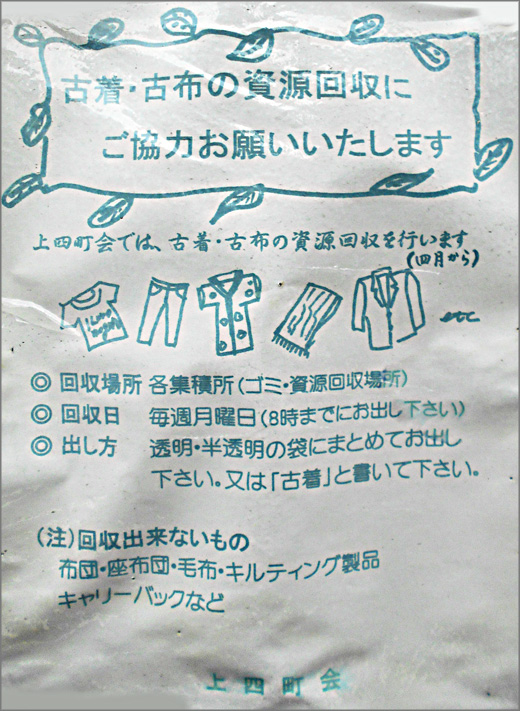 古着・古布の資源回収に
ご協力お願いいたします
上四町会では、古着・古布の資源回収を行います
(四月から)
I Love
etc
◎ 回収場所 各集積所(ゴミ・資源回収場所)
◎ 回収日 毎週月曜日(8時までにお出し下さい)
◎ 出し方 透明・半透明の袋にまとめてお出し
下さい。又は「古着」と書いて下さい。
(注)回収出来ないもの
布団・座布団・毛布・キルティング製品
キャリーバックなど
上四町会